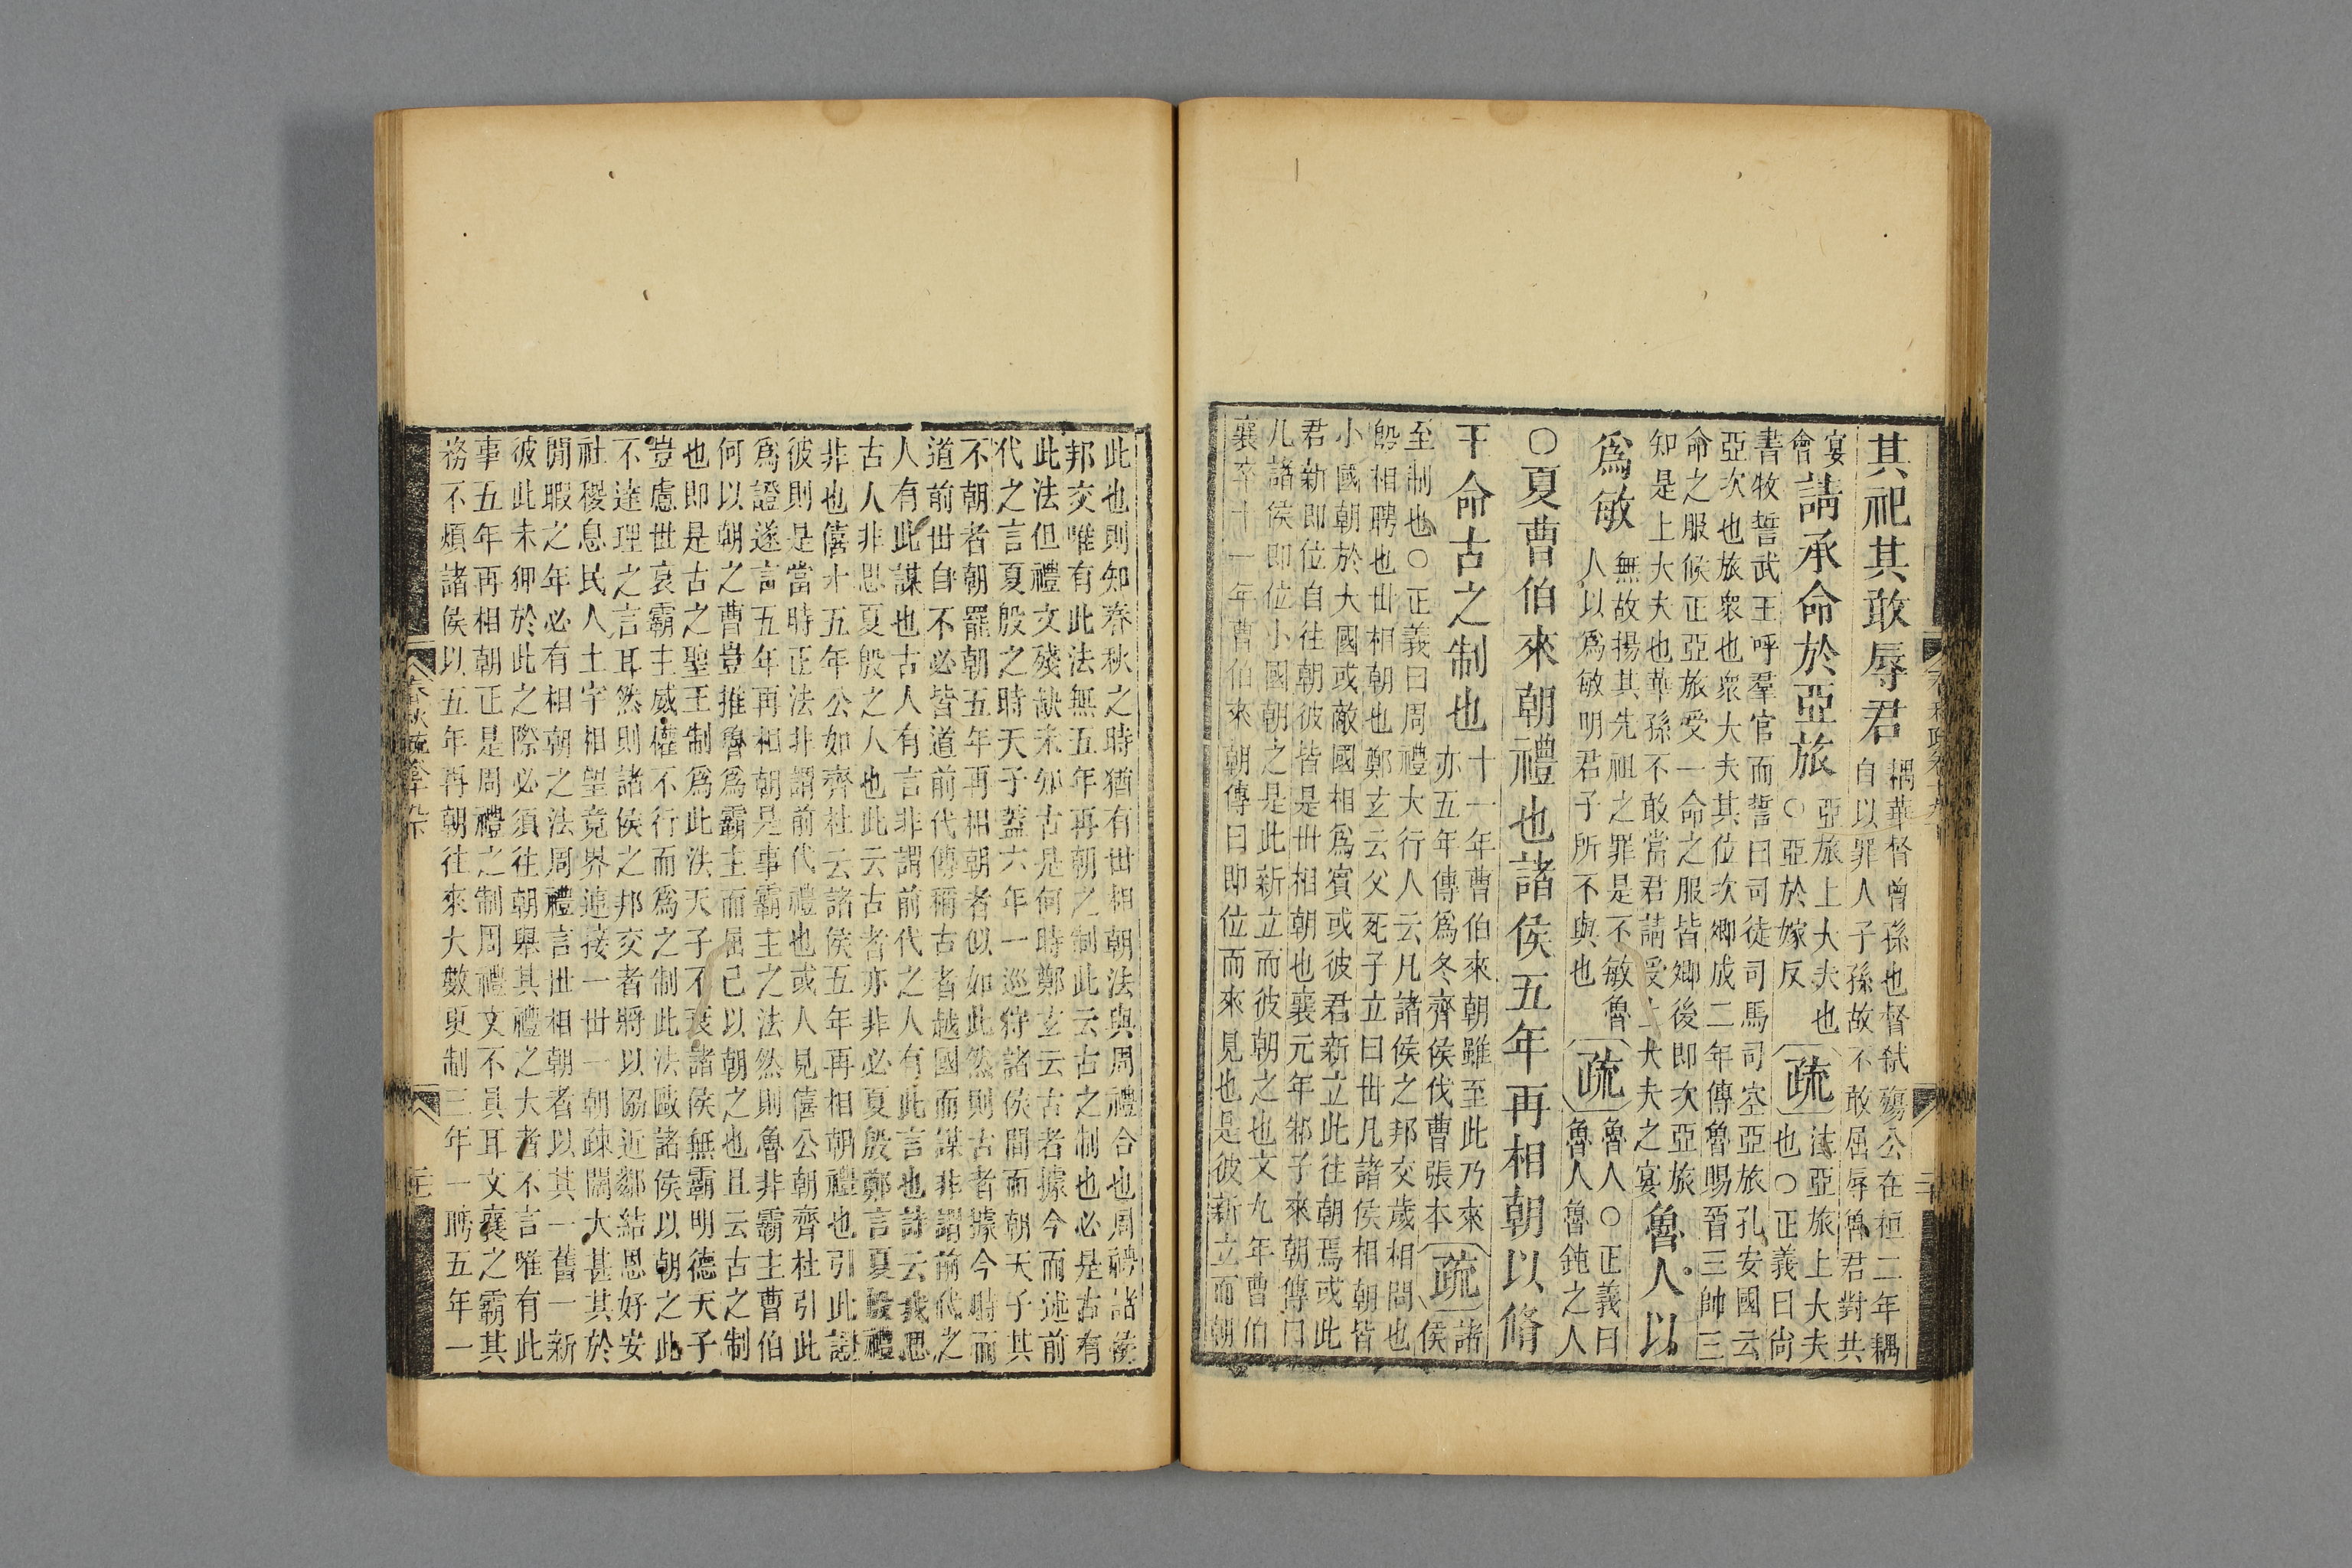 其祀其敢辱君
耦華督曾孫也督弑殤公在桓二年耦
自以罪人子孫故不敢屈辱魯君對共
宴
會
請承命於亞旅
亞旅上大夫也
○亞於嫁反
疏
注亞旅上大夫
也○正義曰尚
書牧誓武王呼羣官而誓曰司徒司馬司空亞旅孔安國云
亞次也旅衆也衆大夫其位次卿成二年傳魯賜晉三帥三
命之服候正亞旅受一命之服皆卿後即次亞旅
知是上大夫也華孫不敢當君請受上大夫之宴
魯人以
爲敏
無故揚其先祖之罪是不敏魯
人以爲敏明君子所不與也
疏
魯人○正義曰
魯人魯鈍之人
○夏曹伯來朝禮也諸侯五年再相朝以脩
王命古之制也
十一年曹伯來朝雖至此乃來
亦五年傳爲冬齊侯伐曹張本
疏
諸
侯
至制也○正義曰周禮大行人云凡諸侯之邦交歲相問也
殷相聘也世相朝也鄭玄云父死子立曰世凡諸侯相朝皆
小國朝於大國或敵國相爲賓或彼君新立此往朝焉或此
君新即位自往朝彼皆是世相朝也襄元年邾子來朝傳曰
凡諸侯即位小國朝之是此新立而彼朝之也文九年曹伯
襄卒十一年曹伯來朝傳曰即位而來見也是彼新立而朝
此也則知春秋之時猶有世相朝法與周禮合也周聘諸侯
邦交唯有此法無五年再朝之制此云古之制也必是古有
此法但禮文殘缺未知古是何時鄭玄云古者據今而述前
代之言夏殷之時天子蓋六年一巡狩諸侯間而朝天子其
不朝者朝罷朝五年再相朝者似如此然則古者據今時而
道前世自不必皆道前代傳稱古者越國而謀非謂前代之
人有此謀也古人有言非謂前代之人有此言也詩云我思
古人非思夏殷之人也此云古者亦非必夏殷鄭言夏殷禮
非也僖十五年公如齊杜云諸侯五年再相朝禮也引此證
彼則是當時正法非謂前代禮也或人見僖公朝齊杜引此
爲證遂言五年再相朝是事霸主之法然則魯非霸主曹伯
何以朝之曹豈推魯爲霸主而屈己以朝之也且云古之制
也即是古之聖王制爲此法天子不衰諸侯無霸明德天子
豈慮世衰霸主威僅不行而爲之制此法歐諸侯以朝之此
不達理之言耳然則諸侯之邦交者將以協近鄰結恩好安
社稷息民人土宇相望竟界連接一世一朝疎闊大甚其於
間暇之年必有相朝之法周禮言世相朝者以其一舊一新
彼此未狎於此之際必須往朝舉其禮之大者不言唯有此
事五年再相朝正是周禮之制周禮文不具耳文襄之霸其
務不煩諸侯以五年再朝往來大數更制三年一聘五年一